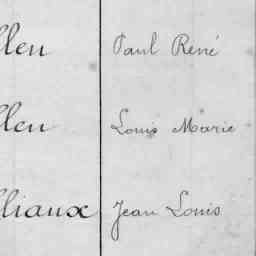 llen Paul René
llen Louis Marie
lliaux Jean Louis